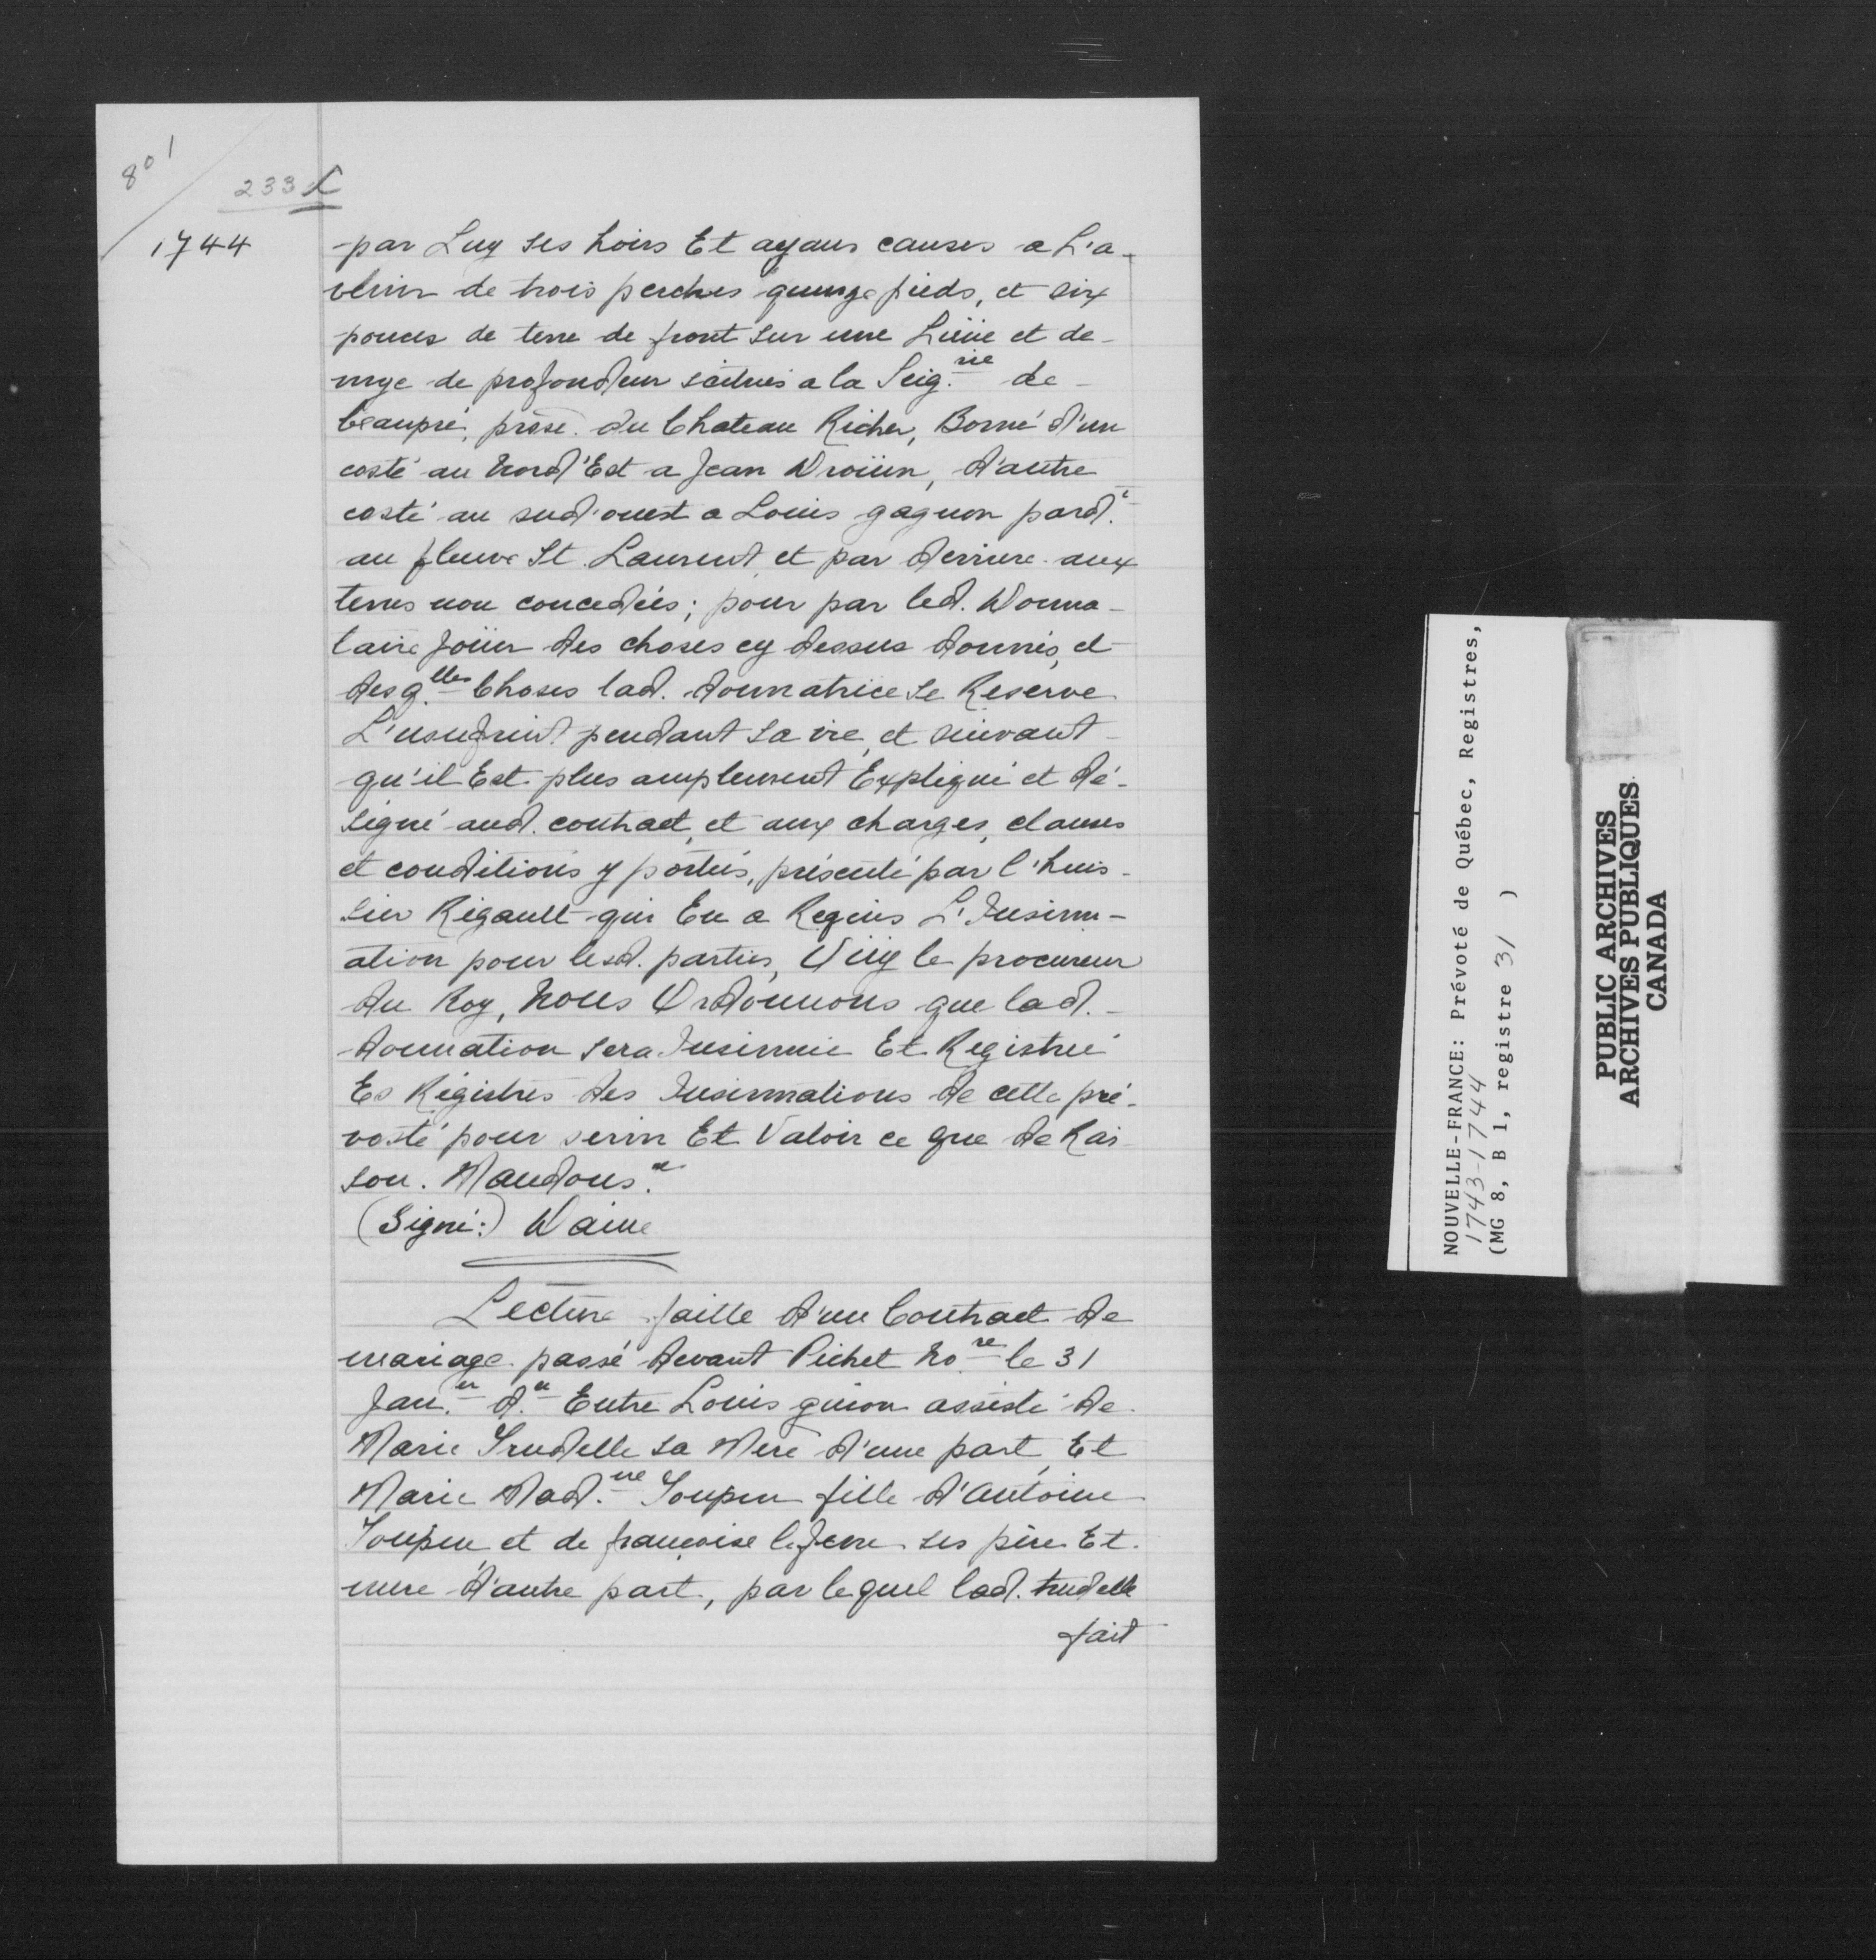 801
233
1744
par Luy ses hoirs Et ayans causes a L'a-
venir de trois perches quinze pieds, et six
pouces de terre de front sur une Lieüe et de-
mye de profondeur scitués a la Seig.rie de
beaupré, prosse. du Chateau Richer, Borné d'un
costé au Nord'Est a Jean Droüin, d'autre
costé au sud'ouest a Louis gagnon pard.t
au fleuve St. Laurent et par derriere aux
terres non concedées; pour par led. Donna-
taire Joüir des choses cy dessus donnés, et
desq.lles Choses lad. donnatrice se Reserve
L'usufruit pendant sa vie, et suivant
qu'il Est plus amplement Expliqué et dé-
signé aud. contract, et aux charges, clauses
et conditions y portées, présenté par l'huis-
sier Rigault qui En a Requis L'Insinu-
ation pour lesd. parties, Oüy le procureur
du Roy, Nous Ordonnons que lad.
donnation sera Insinuée Et Registrée
Es Régistres des Insinuations de cette pré-
vosté pour servir Et Valoir ce que de Rai-
son. Mandons.&
(Signé:) Daine
Lecture faitte d'un Contract de
mariage passé devant Pichet No.re le 31
Jan.er d.er Entre Louis guion assisté de
Marie Trudelle sa Mere d'une part, Et
Marie Mad.ne Toupin fille d'antoine
Toupin et de françoise lefevre ses père Et
mere d'autre part, par lequel lad. trudelle
fait
NOUVELLE-FRANCE: Prévoté de Québec, Registres,
1743-1744
(MG 8, B 1, registre 31 )
PUBLIC ARCHIVES
ARCHIVES PUBLIQUES
CANADA